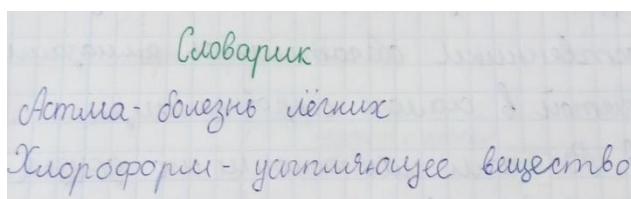 Словарик
Астма - болезнь лёгких
Хлороформ - усыпляющее вещество